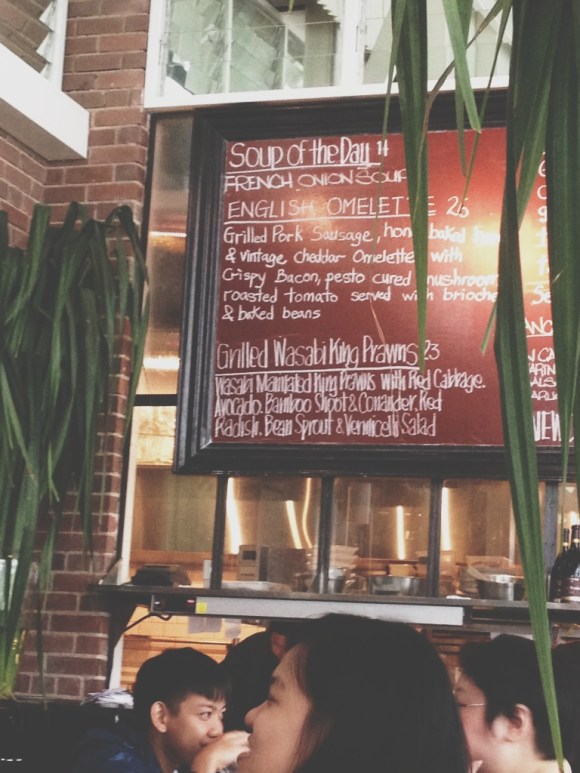 Soup of the Day 14
FRENCH ONION SOUP
ENGLISH OMELETTE 25
Grilled Pork Sausage, baked
& vintage cheddar Omelette with
Crispy Bacon, pesto cured mushroom
roasted tomato served with brioche
& baked beans
Grilled Wasabi King Prawns 23
Wasabi Marinated King Prawns with Red Cabbage.
Avocado. Bamboo Shoot & Coriander, Red
Radish, Bean Sprout & Vermicelli Salad